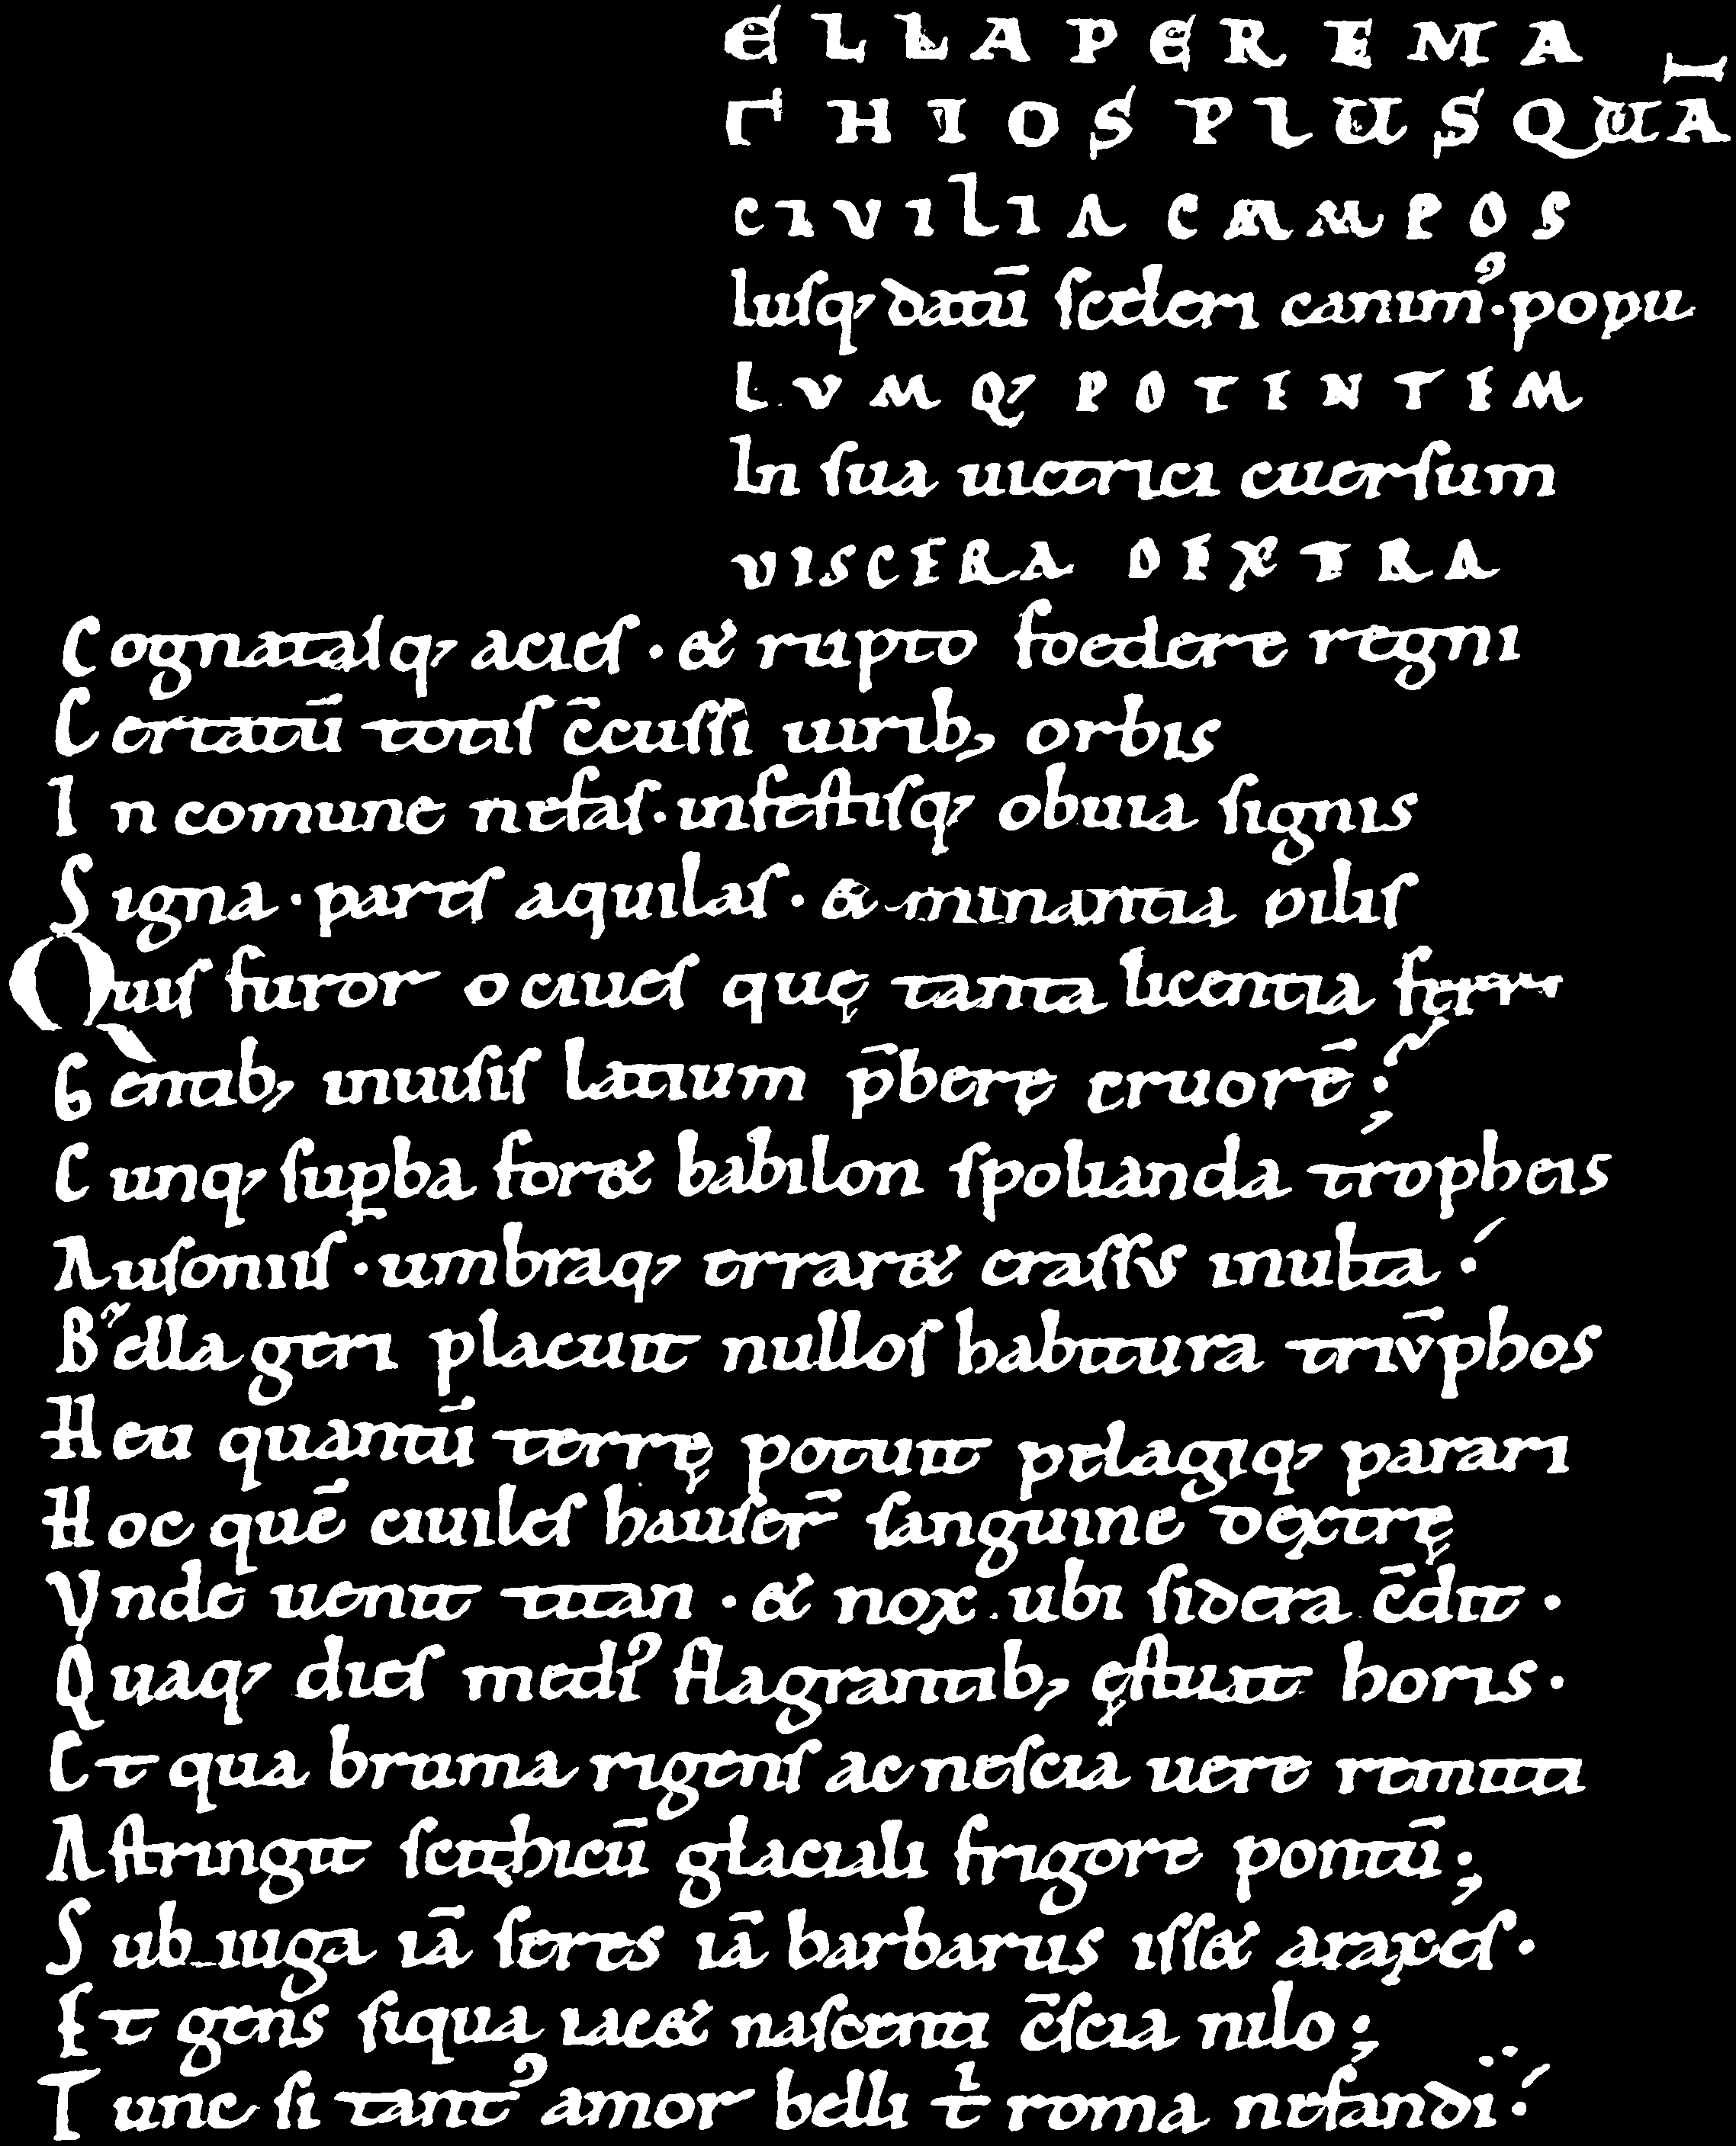 ELLA PER EMA
THIOS PLUS QUĀ
CIVILIA CAMPOS
Iusq; datū sceleri canimꝰ· popu
LVMQ; POTENTEM
In sua uictrici euersum
VISCERA DEXTRA
Cognatasq; acies · & rupto foedere regni
Certatū totis c̄cussi uirib; orbis
In comune nefas· infestisq; obuia signis
Signa · partes aquilas · & minantia pilis
Quis furor o ciues quę tanta licentia ferri
Gentib; inuisis latium p̄bere cruorē;
Cunq; suꝑba foret babilon spolianda tropheis
Ausoniis · umbraq; erraret crassus inulta·
Bella geri placuit nullos habitura triūphos
Heu quantū terrę potuit pelagiq; parari
Hoc quē ciuiles hauser̄ sanguine dextrę
Vnde uenit titan · & nox ubi sidera c̄dit ·
Quaq; dies mediꝰ flagrantib; ęstuat horis·
Et qua bruma rigens ac nescia uere remitti
Astringit scithicū glaciali frigore pontū;
Sub iuga iā seres iā barbarus isset araxes·
Et gens siqua iacet nascenti c̄scia nilo;
Tunc si tantꝰ amor belli t̄ roma nefandi·